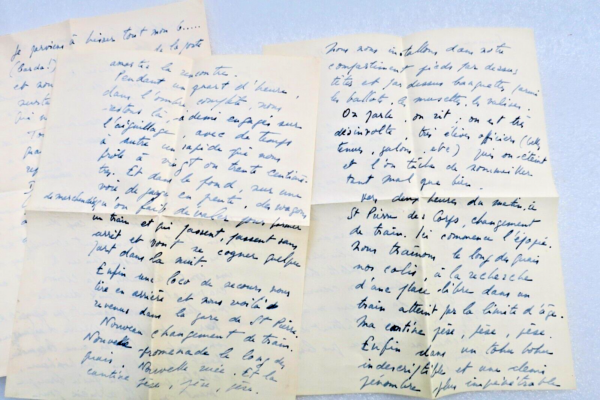 Je parviens à hisser tout mon b.....
de la porte
et nou
amortes la rencontre.
Pendant un quart d'heure,
dans l'ombre complète, nous
restons là, à demi engagés sur
l'aiguillage, avec de temps
à autre un rapide qui nous
frôle à vingt ou trente centimè-
tres. Et dans le fond, sur une
voie de garage en pente, des wagons
de marchandises qu'on fait pour former
un train et qui passent, passent sans
arrêt et vont se cogner quelque
part dans la nuit.
Enfin une loco de secours nous
tire en arrière et nous voilà
revenus dans la gare de St Pierre.
Nouveau changement de train.
Nouvelle promenade le long des
quais. Nouvelle ruée. Et la
cantine pèse, pèse, pèse.
Nous nous installons dans notre
compartiment pieds par dessus
têtes et par dessus banquettes, parmi
les ballots, les musettes, les valises.
On parle, on rit, on est très
désinvolte, très élèves officiers (
tenues, galons, etc) puis on s'étend
et l'on tâche de sommeiller
tant mal que bien.
vers deux heures du matin, à
St Pierre des Corps, changement
de train. Ici commence l'épopée.
Nous traînons le long des quais
nos colis, à la recherche
d'une place libre dans un
train atteint par la limite d'âge.
Ma cantine pèse, pèse, pèse.
Enfin dans un tohu bohu
indescriptible et une demi
pénombre plus impénétrable